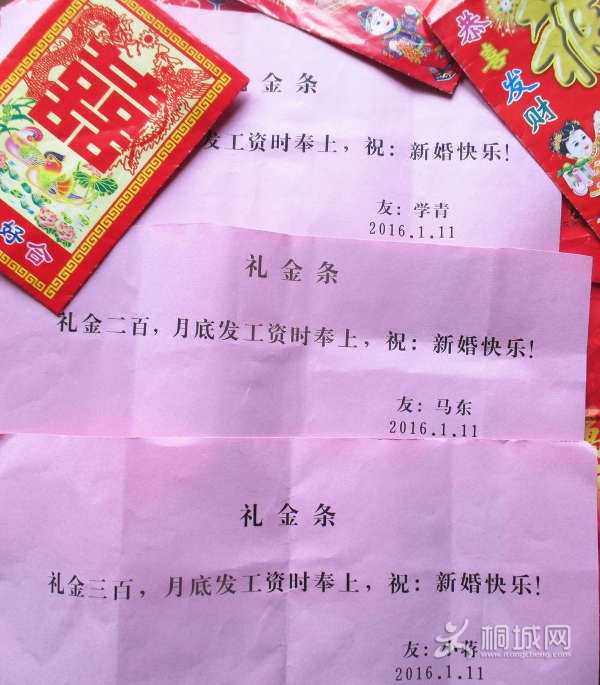 囍
好合
恭喜发财
金条
发工资时奉上，祝：新婚快乐！
友：学青
2016.1.11
礼金条
礼金二百，月底发工资时奉上，祝：新婚快乐！
友：马东
2016.1.11
礼金条
礼金三百，月底发工资时奉上，祝：新婚快乐！
友：小蒋
2016.1.11
桐城网
www.itongcheng.com